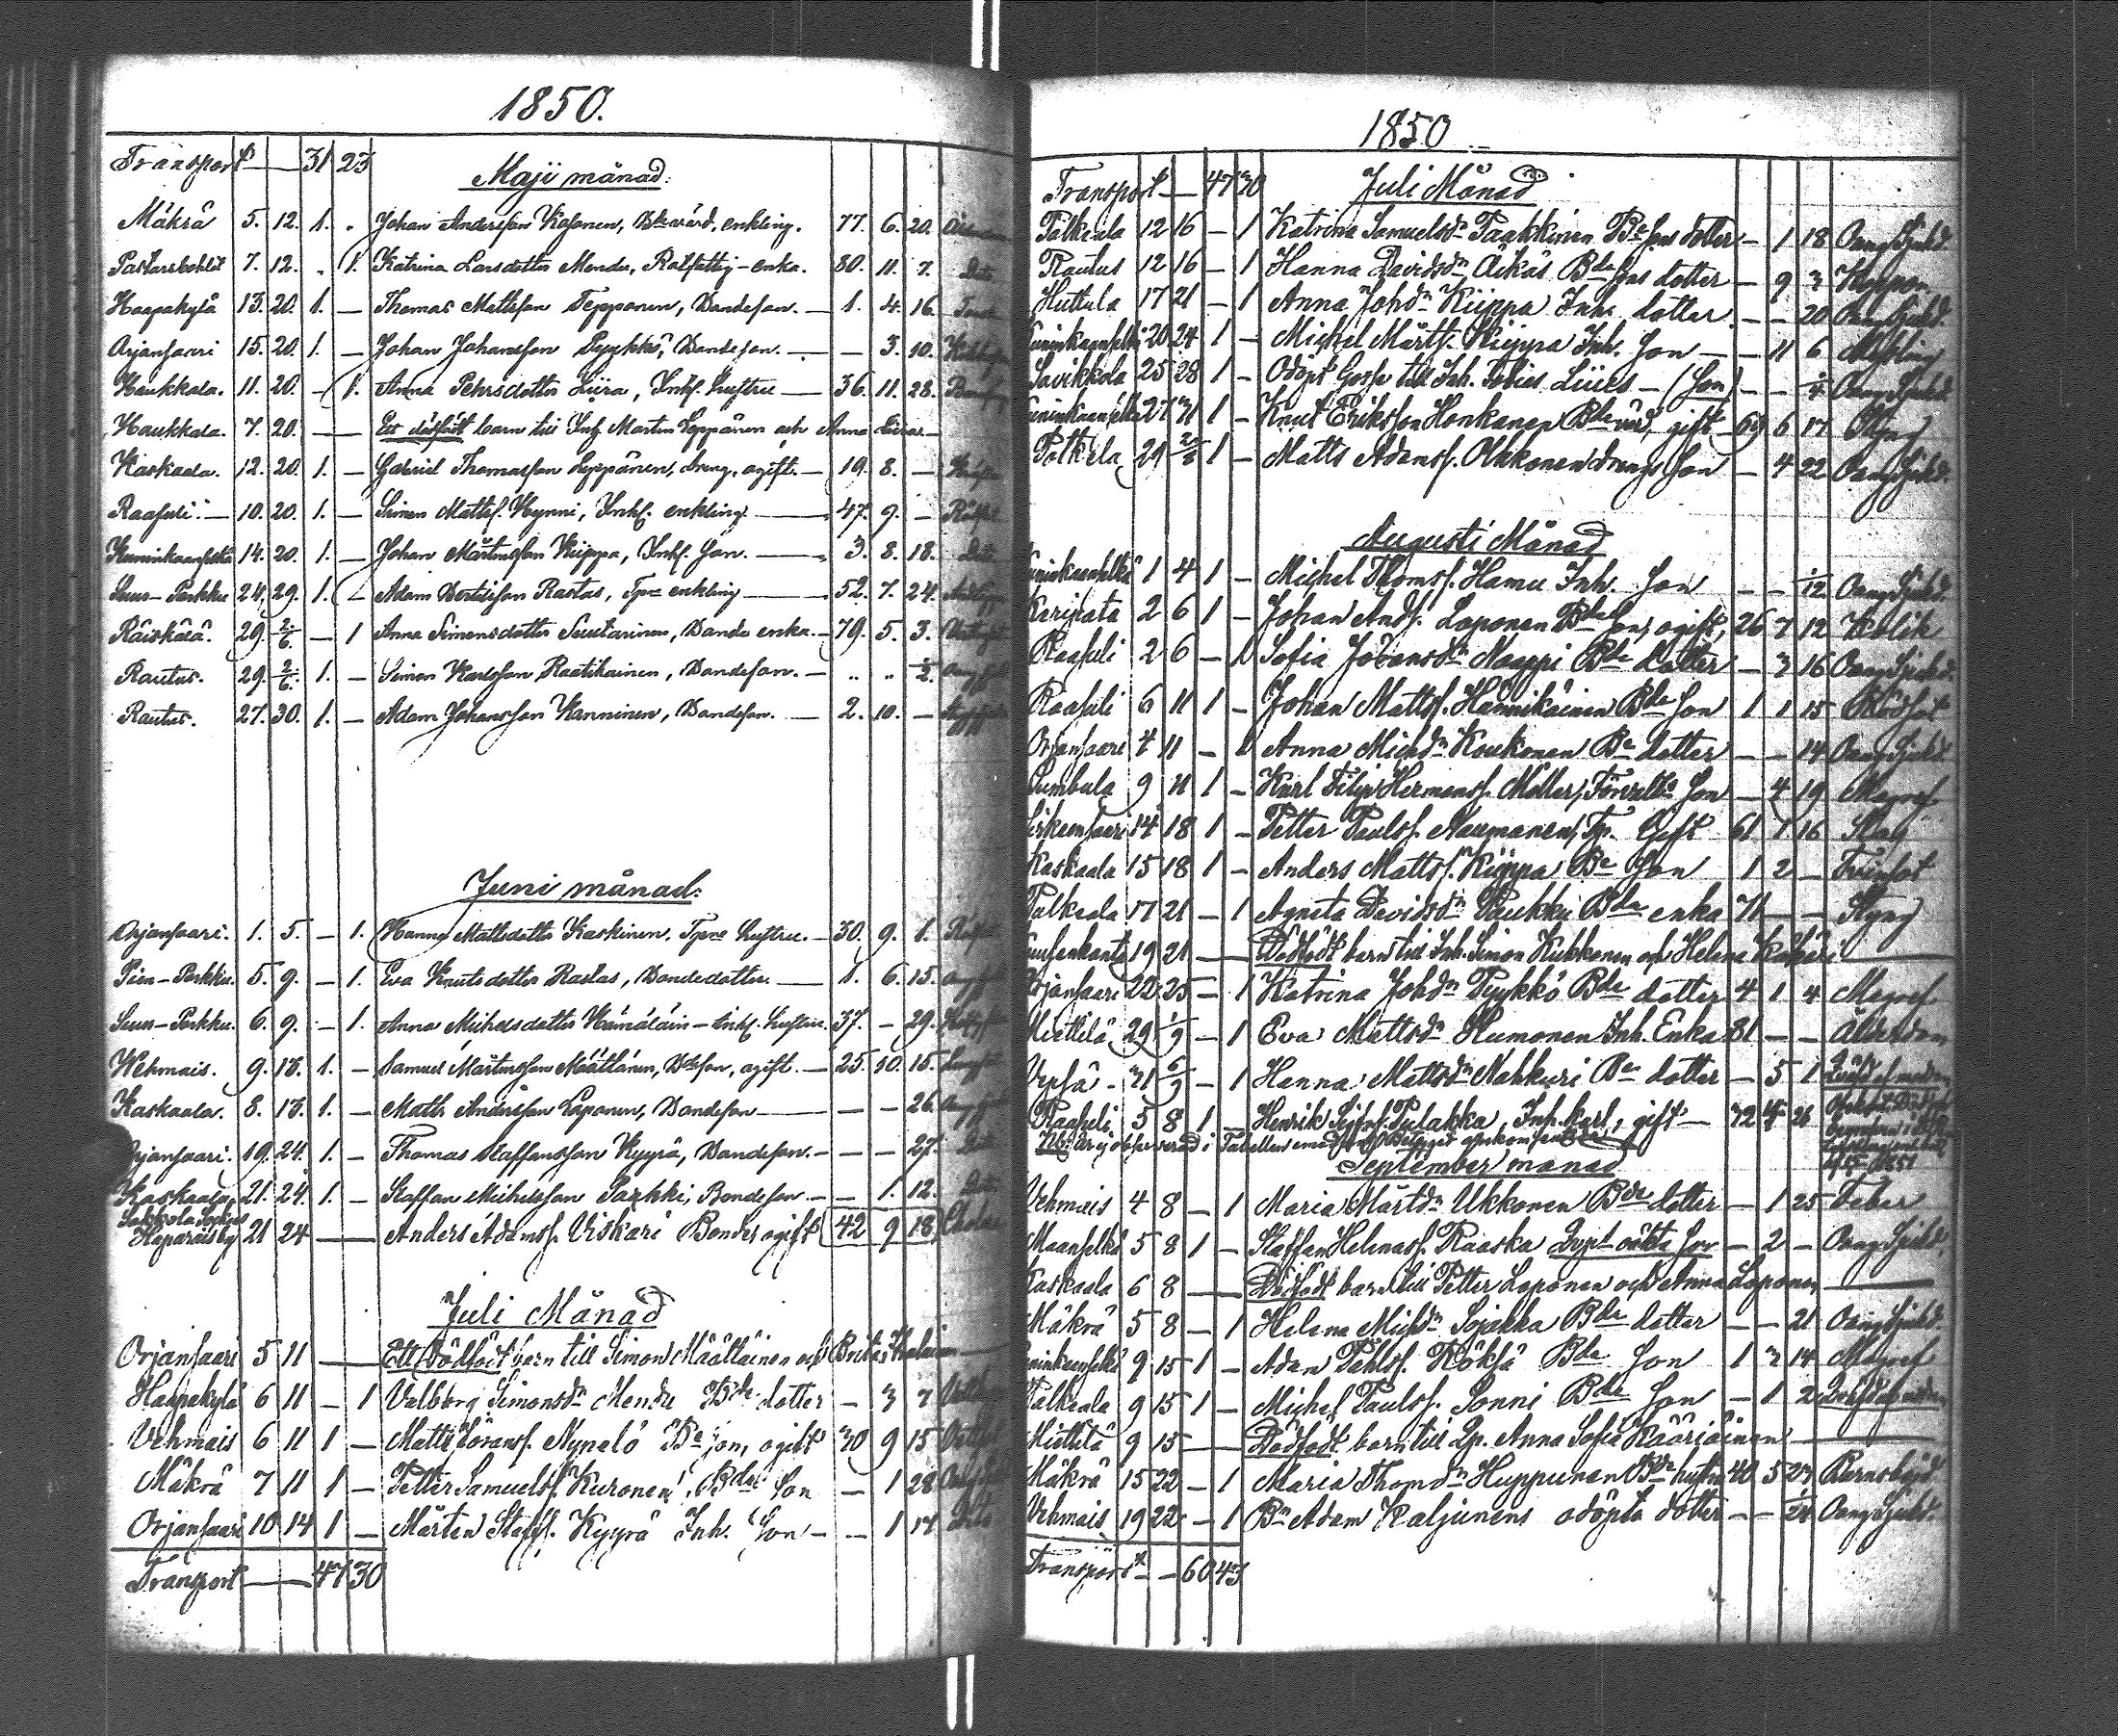 1850.
Transport — — 31 23
Maji månad:
Mäkrä 5. 12. 1. . Johan Andersson Kosonen, Bdevärd, enkling. 77. 6. 20.
7. 12. . 1. Katrina Larsdotter Mendu, Rotfattig-enka. 80. 11. 7. dito
Haapakylä 13. 20. 1. — Thomas Mattsson Tepponen, Bondeson. — 1. 4. 16.
Orjansaari 15. 20. 1. — Johan Johansson Pyykkö, Bondeson. — — 3. 10.
Haukkala. 11. 20. — 1. Anna Pehrsdotter Liira, Inhs. hustru — 36. 11. 28.
Haukkala. 7. 20. — — Ett dödfödt barn till Inh Martin Leppänen och Anna —
Kaskaala. 12. 20. 1. — Gabriel Thomasson Leppänen, dreng, ogift. — 19. 8. —
Raasuli. — 10. 20. 1. — Simon Mattss. Hynni, Inhs. enkling — 47. 9. —
Kuninkaanselkä 14. 20. 1. — Johan Mårtensson Kiippa, Inhs. son. — 3. 8. 18. dito
Suur-Porkku 24. 29. 1. — Adam Bertilsson Rastas, Tpre enkling — 52. 7. 24.
Räiskälä. 29. 2/6. — 1 Anna Simonsdotter Suutarinen, Bonde enka. — 79. 5. 3.
Rautus. 29. 2/6. 1. — Simon Karlsson Raatikainen, Bondeson. — .. .. 1/2.
Rautus. 27. 30. 1. — Adam Johansson Kanninen, Bondeson. — 2. 10. —
Juni månad:
Orjansaari. 1. 5. — 1. Hanna Mattsdotter Kaskinen, Tpre hustru. — 30. 9. 1.
Pien-Porkku. 5. 9. — 1. Eva Knutsdotter Rastas, Bondedotter — 1. 6. 15.
Suur-Porkku. 6. 9. — 1. Anna Michelsdotter Hämäläin — Inhs. hustru. 37. — 29.
Wehmais. 9. 13. 1. — Samuel Mårtensson Määttänen, Bdeson, ogift. — 25. 10. 15.
Kaskaala. 8. 13. 1. — Matts Andersson Laponen, Bondeson — — — 26.
Orjansaari. 19. 24. 1. — Thomas Staffansson Kyyrä, Bondeson. — — — 27. dito
Kaskaala 21. 24. 1. — Staffan Michelsson Parkki, Bondeson — — 1. 12. dito
Sakkola Socken
Haparais by 21 24 — — Anders Adamss. Viskari Bonde, ogift 42 9 18 Cholera
Juli Månad
Orjansaari 5 11 — Ett Dödfödt barn till Simon Määttäinen och Brita
Haapakylä 6 11 — 1 Valborg Simonsdr Mendu Bde dotter — 3 7
Vehmais 6 11 1 — Matts Göranss. Nynelö Be son, ogift 30 9 15
Mäkrä 7 11 1 — Petter Samuelss. Kuronen, Bde Son — 1 28
Orjansaari 10 14 1 — Mårten Staffs. Kyyrä Inh. Son — — 1 17 dito
Transport — — 47 30
1850
Transport — 47 30
Juli Månad
Palkeala 12 16 — 1 Katrina Samuelsdr Paakkinen Bde sons dotter — 1 18 Oang Sjukd.
Rautus 12 16 — 1 Hanna Davidsdr Äikäs Bde sons dotter — 9 3 Koppor
Huttula 17 21 — 1 Anna Johdr Kiippa Inh. dotter — — 20 Oang Sjukd.
Kuninkaanselkä 20 24 1 — Michel Mårtss. Kiippa Inh. Son — — 11 6 Messling
Savikkola 25 28 1 — Odöpt Gosse till Inh. Tobias Liires — (Son) — — Oang Sjukd.
Kuninkaanselkä 27 31 1 — Knut Eriksson Honkanen Bde värd, gift 69 6 17 Styng
Palkeala 29 2/8 1 — Matts Adamss. Ukkonen drengs Son — 4 22 Oang Sjukd.
Augusti Månad
Kuninkaanselkä 1 4 1 — Michel Thomss. Hamu Inh. Son — — 1/12 Oang Sjukd.
Keripata 2 6 1 — Johan Andss. Loponen Bde Son, ogift, 26 7 12 Kolik
Raasuli 2 6 — 1 Sofia Johansdr Naappi Bde dotter — 3 16 Oang Sjukd.
Raasuli 6 11 1 — Johan Mattss. Hännikäinen Bde Son 1 1 15 Rödsot
Orjansaari 4 11 — 1 Anna Michdr Koukonen Be dotter — — 14 Oang Sjukd
Sumbula 9 11 1 — Karl Filip Hermanss. Möller, Förvalt. Son — 4 19 Magref
14 18 1 — Petter Paulss. Naumanen, Tp. Gift 61 1 16 Slag
Kaskaala 15 18 1 — Anders Mattss. Kiippa Be Son 1 2 — Tvinsot
Palkeala 17 21 — 1 Agneta Davidsdr Paukku Bde enka 71 — — Styng
19 21 — Dödfödt barn till Inh. Simon Kukkonen och Helena
Orjansaari 22 25 — 1 Katrina Johdr Pyykkö Bde dotter 4 1 4 Magref
Miettilä 29 1/9 — 1 Eva Mattsdr Humonen Inh. Enka 81 — — Ålderdom
Vepsä — 31 6/9 — 1 Hanna Mattsdr Nahkuri Be dotter — 5 1 Qväfd af modren
Raasuli 5 8 1 — Henrik Sigfrs. Pulakka, Inh. karl, gift — 32 4 26
September månad
Vehmais 4 8 — 1 Maria Mårtdr Ukkonen Bde dotter — 1 25 Feber
Maanselkä 5 8 1 — Staffan Helenass. Raaska Lqpt oäkta Son — 2 — Oang Sjukd.
Kaskaala 6 8 — Dödfödt barn till Petter Loponen och Anna Loponen
Mäkrä 5 8 — 1 Helena Michdr Sojakka Bde dotter — — 21 Oang Sjukd.
Kuninkaanselkä 9 15 1 — Adam Pehlss. Röksä Bde Son 1 3 14 Magref
Palkeala 9 15 1 — Michel Paulss. Sonni Bde Son — 1 2 Qväfd af modren
Miettilä 9 15 — Dödfödt barn till Lp. Anna Sofia Kääriäinen
Mäkrä 15 22 — 1 Maria Thomdr Huppunen Bde hustru 40 5 27 Barnsbörd
Vehmais 19 22 — 1 Be Adam Kaljunens odöpta dotter — — 1/24 Oang Sjukd.
Transport — — 60 43